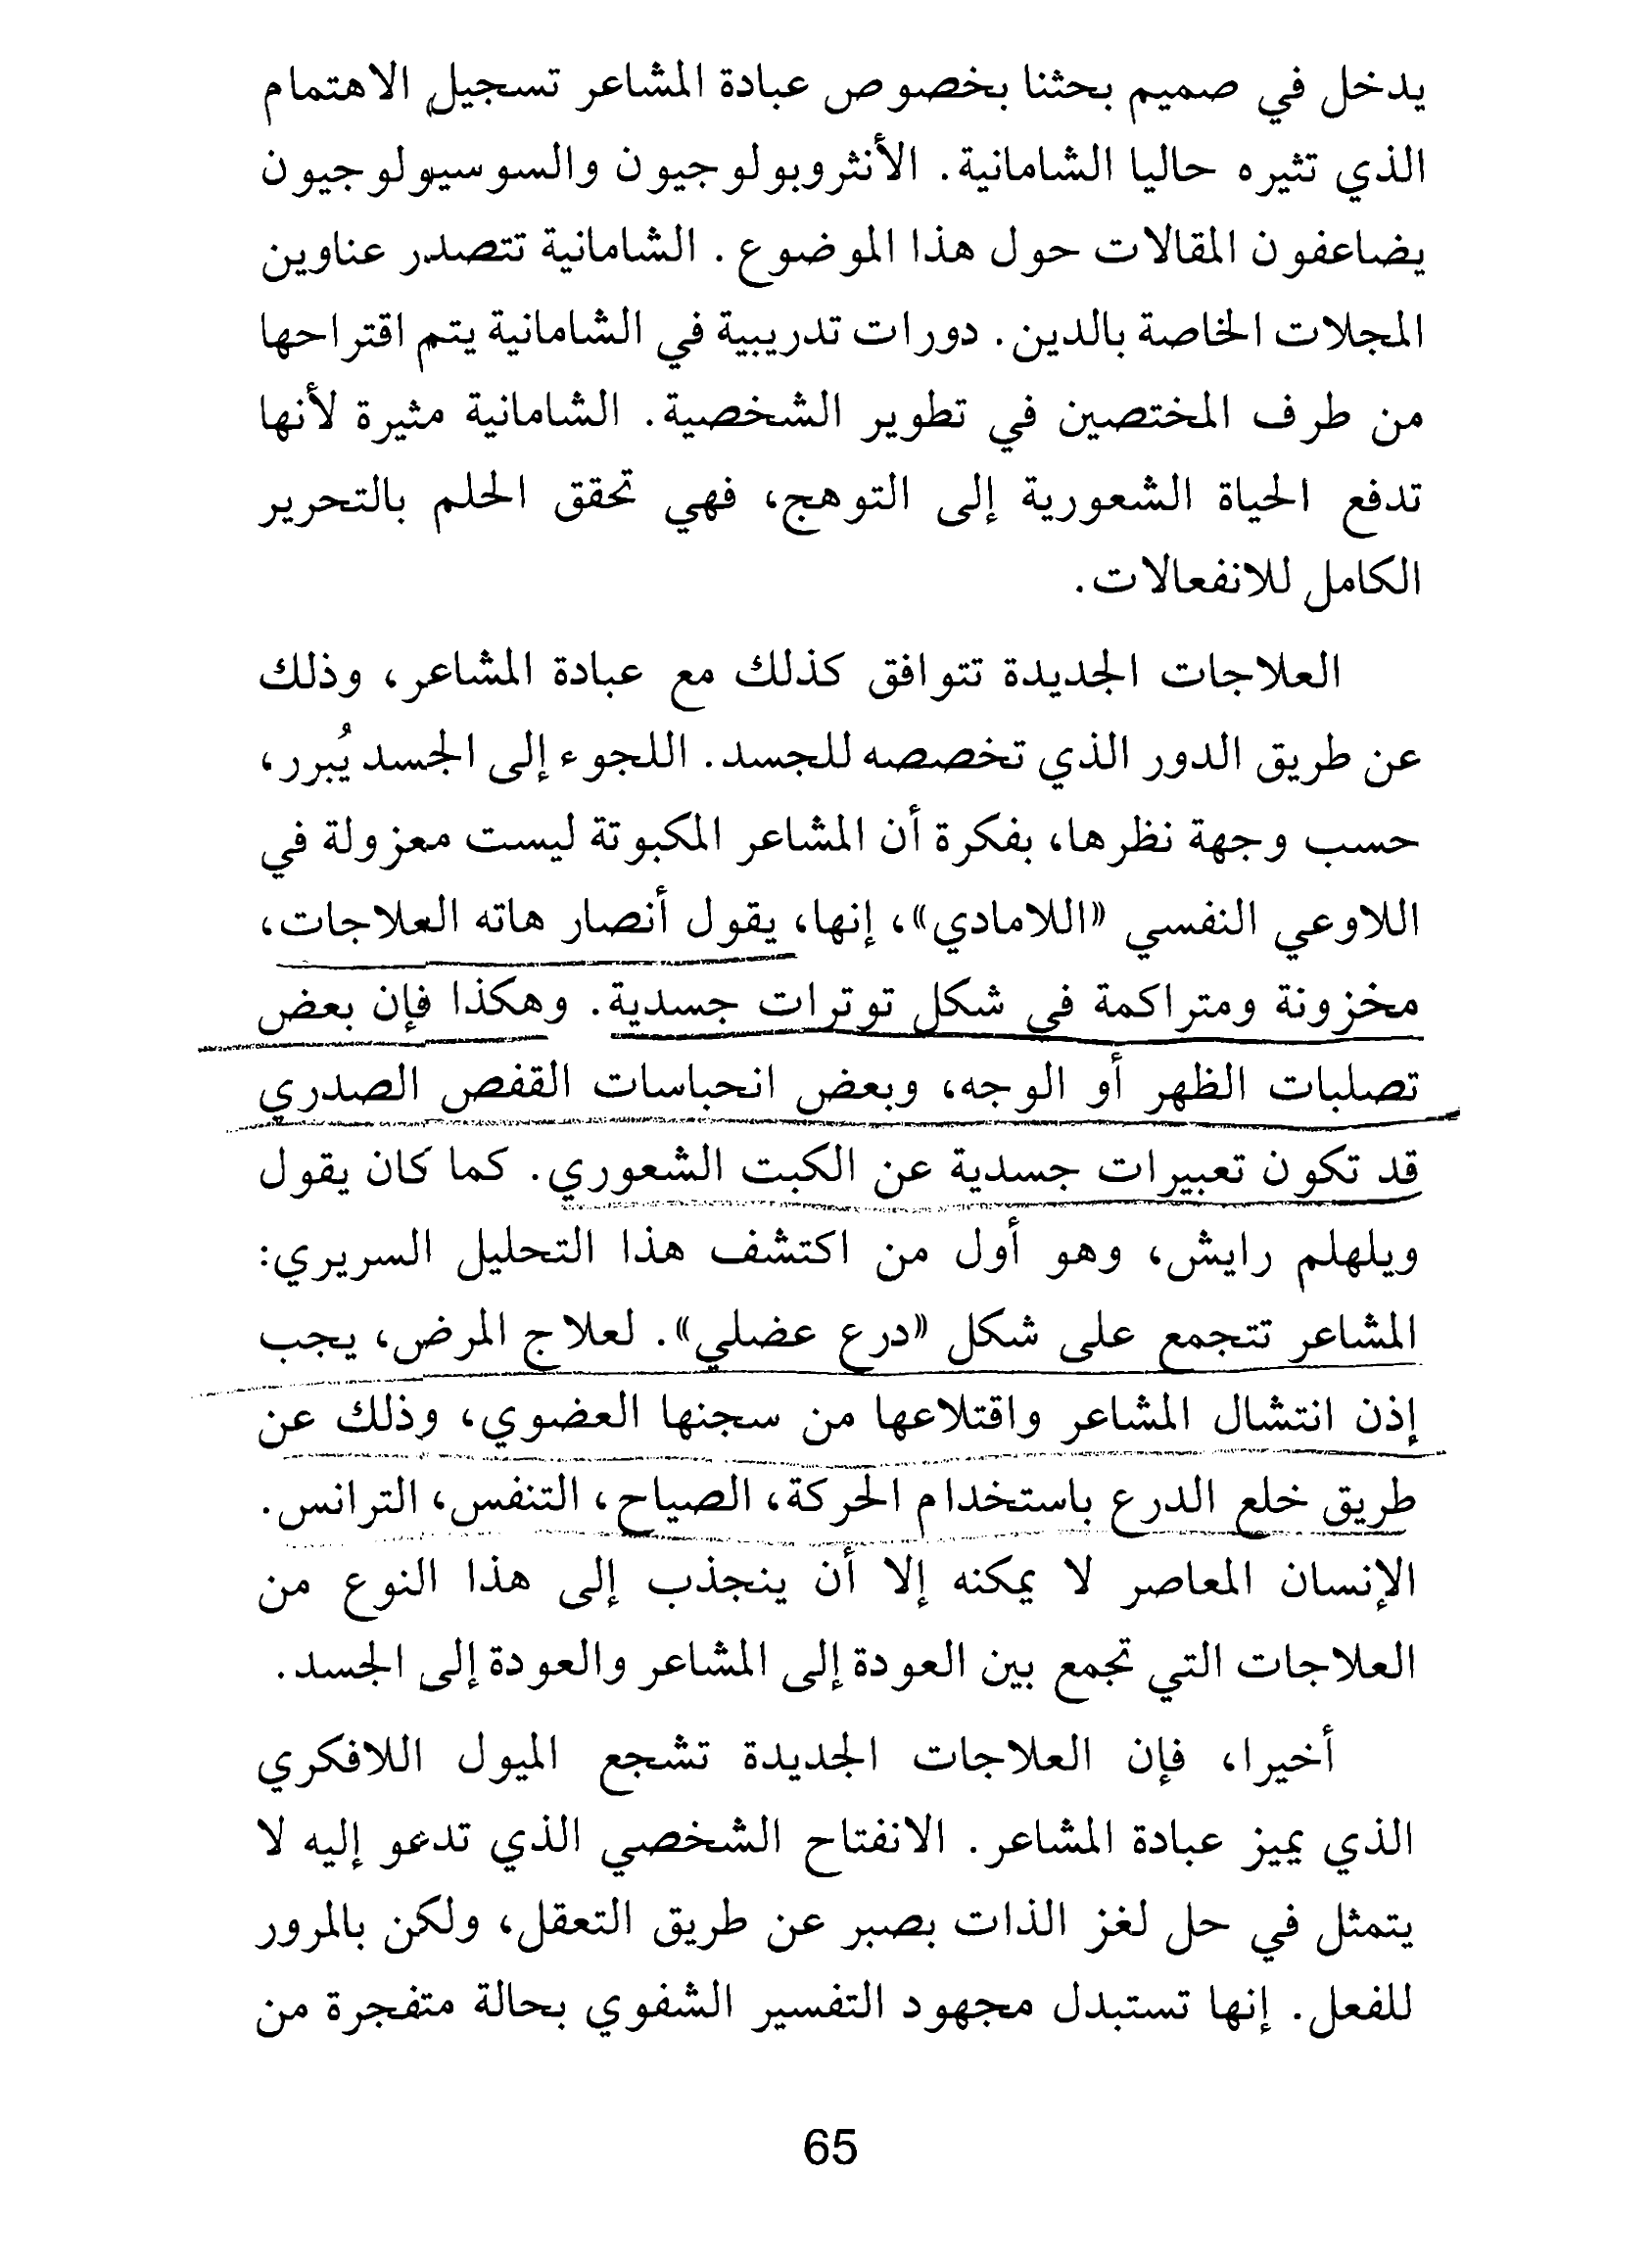 يدخل في صميم بحثنا بخصوص عبادة المشاعر تسجيل الاهتمام
الذي تثيره حاليا الشامانية. الأنثروبولوجيون والسوسيولوجيون
يضاعفون المقالات حول هذا الموضوع. الشامانية تتصدر عناوين
المجلات الخاصة بالدين. دورات تدريبية في الشامانية يتم اقتراحها
من طرف المختصين في تطوير الشخصية. الشامانية مثيرة لأنها
تدفع الحياة الشعورية إلى التوهج، فهي تحقق الحلم بالتحرير
الكامل للانفعالات.
العلاجات الجديدة تتوافق كذلك مع عبادة المشاعر، وذلك
عن طريق الدور الذي تخصصه للجسد. اللجوء إلى الجسد يُبرر،
حسب وجهة نظرها، بفكرة أن المشاعر المكبوتة ليست معزولة في
اللاوعي النفسي «اللامادي»، إنها، يقول أنصار هاته العلاجات،
مخزونة ومتراكمة في شكل توترات جسدية. وهكذا فإن بعض
تصلبات الظهر أو الوجه، وبعض انحباسات القفص الصدري
قد تكون تعبيرات جسدية عن الكبت الشعوري. كما كان يقول
ويلهلم رايش، وهو أول من اكتشف هذا التحليل السريري:
المشاعر تتجمع على شكل «درع عضلي». لعلاج المرض، يجب
إذن انتشال المشاعر واقتلاعها من سجنها العضوي، وذلك عن
طريق خلع الدرع باستخدام الحركة، الصياح، التنفس، الترانس.
الإنسان المعاصر لا يمكنه إلا أن ينجذب إلى هذا النوع من
العلاجات التي تجمع بين العودة إلى المشاعر والعودة إلى الجسد.
أخيرا، فإن العلاجات الجديدة تشجع الميول اللافكري
الذي يميز عبادة المشاعر. الانفتاح الشخصي الذي تدعو إليه لا
يتمثل في حل لغز الذات بصبر عن طريق التعقل، ولكن بالمرور
للفعل. إنها تستبدل مجهود التفسير الشفوي بحالة متفجرة من
65